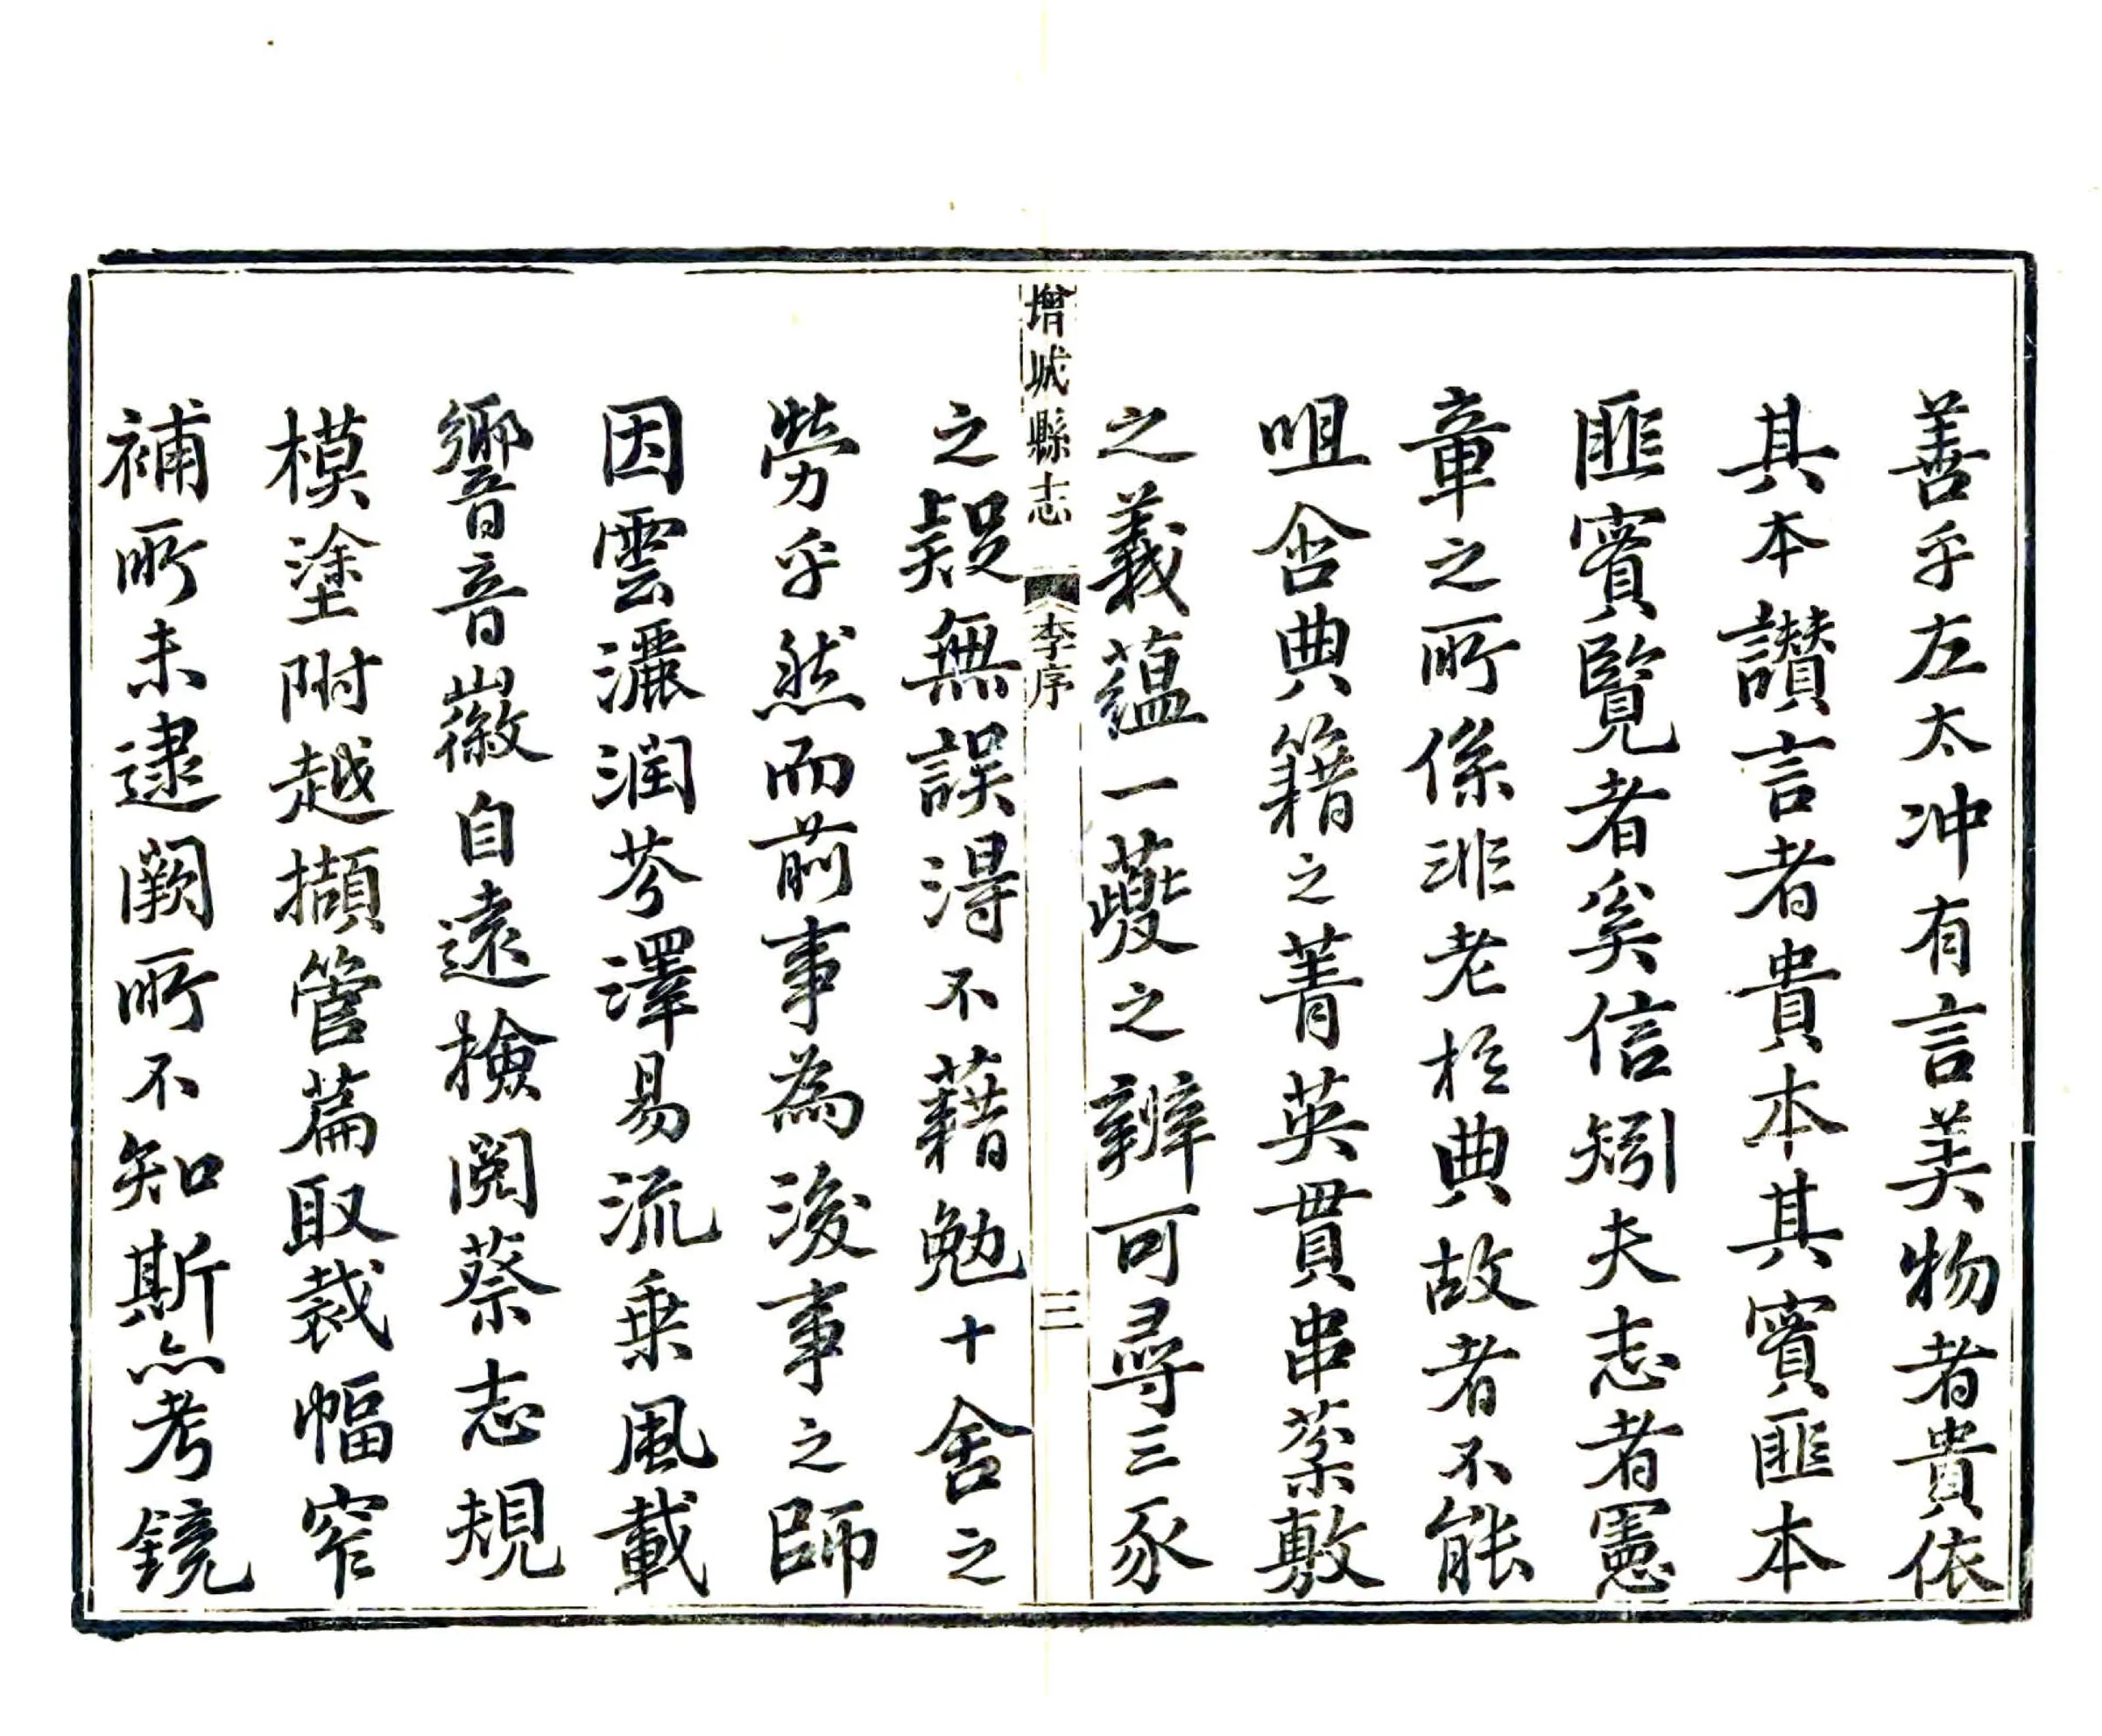 善乎左太冲有言美物者貴依
其本讃言者貴本其實匪本
匪實覽者奚信矧夫志者憲
章之所係非老於典故者不能
咀含典籍之菁英貫串蘂敷
之義蘊一夔之辨可尋三豕
增城縣志 李序 三
之疑無誤淂不藉勉十舍之
勞乎然而前事為後事之師
因雲灑润芬澤易流乗風載
響音徽自遠檢閱蔡志規
模塗附越擷管篇取裁幅窄
補所未逮闕所不知斯亦考鏡